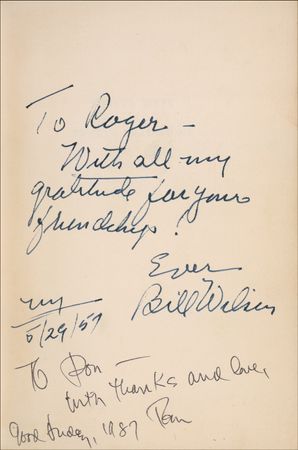 To Roger –
With all my
gratitude for your
friendship!
Ever
Bill Wilson
NY
5/29/57
To Don –
with thanks and love,
Good Friday, 1987